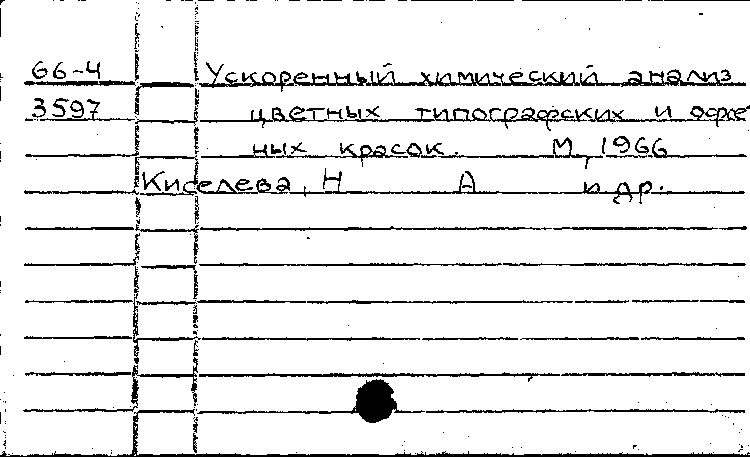 66-4 Ускоренный химический анализ
3597 цветных типографских и офсе
ных красок. М, 1966
Киселева, Н А и др.